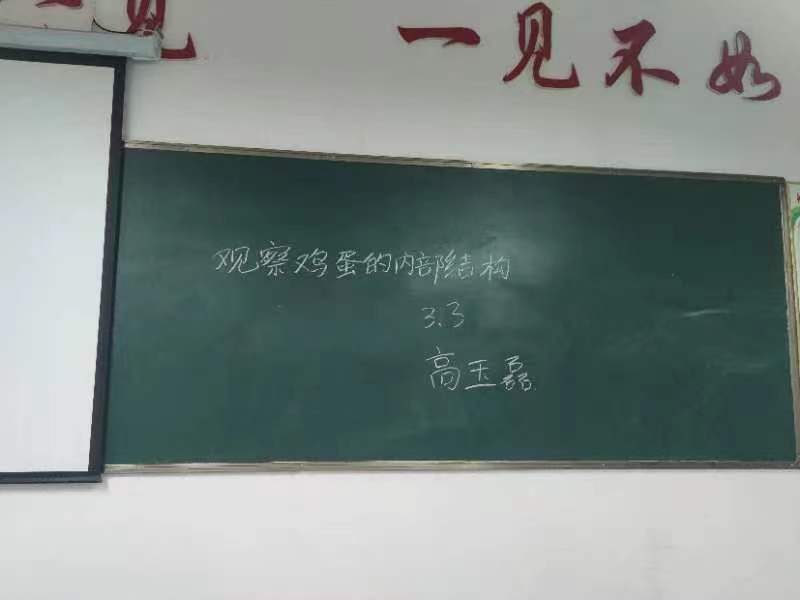 见
一见不如
观察鸡蛋的内部结构
3.3
高玉磊